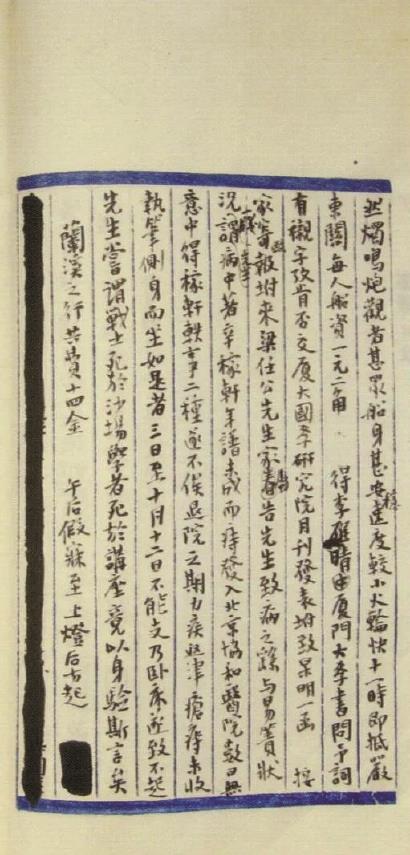 燃爆鳴炮觀者甚眾船身甚安穩速度較小火輪快十一時即抵嚴
東關每人船資一元二角 得李雁晴由廈門大學書問予詞
有襯字攷肯否交廈大國學研究院月刊發表坿致杲明一函 接
家寄報坿來梁任公先生家書告先生致病之繇与易簀狀
況謂病中著辛稼軒年譜未成而痔發入北京協和醫院數日無
意中得稼軒軼事二種遂不俟退院之期力疾返津瘡痔未收
執筆側身而坐如是者三日至十月十二日不能支乃臥床遂致不起
先生嘗謂戰士死於沙場學者死於講座竟以身驗斯言矣
蘭溪之行共費十四金 午后假寐至上燈后方起